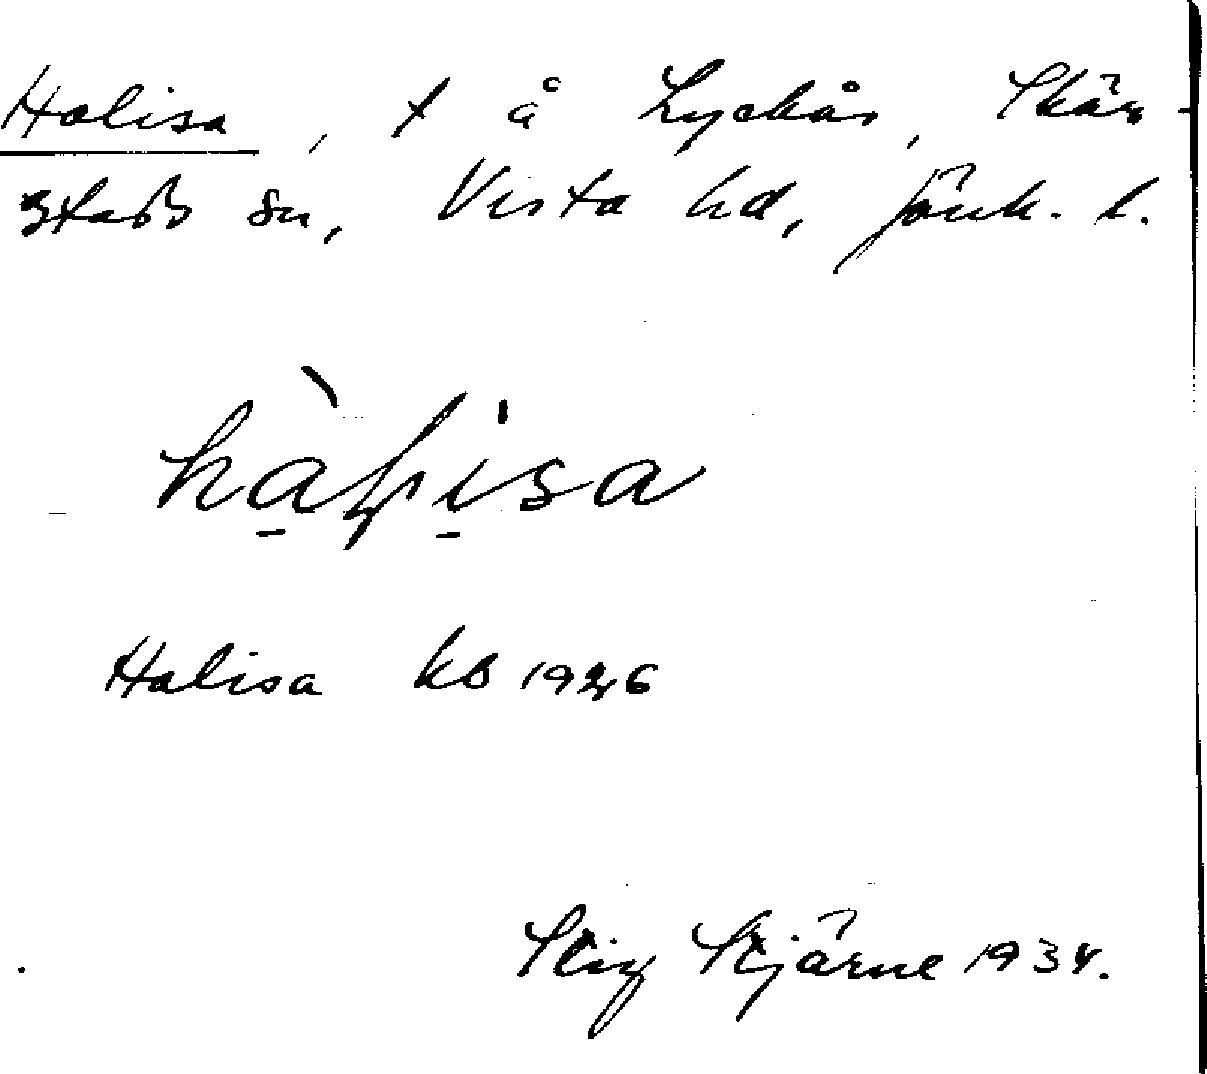 Halisa, t å Lyckås, Skär-
stads sn, Vista hd, Jönk. l.
hàlisa
Halisa kb 1926
Stig Stjärne 1934.